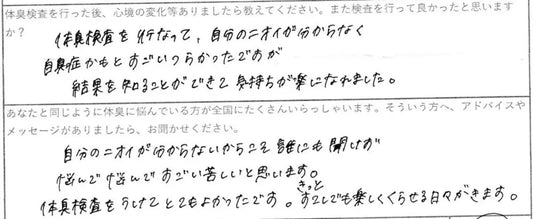 体臭検査を行った後、心境の変化等ありましたら教えてください。また検査を行って良かったと思いますか？
体臭検査を行なって、自分のニオイが分からなく
自臭症かもとすごいつらかったですが
結果を知ることができて気持ちが楽になれました。
あなたと同じように体臭に悩んでいる方が全国にたくさんいらっしゃいます。そういう方へ、アドバイスや
メッセージがありましたら、お聞かせください。
自分のニオイが分からないからこそ誰にも聞けず
悩んで悩んですごい苦しいと思います。
体臭検査をうけてとてもよかったです。きっと少しでも楽しくくらせる日々がきます。